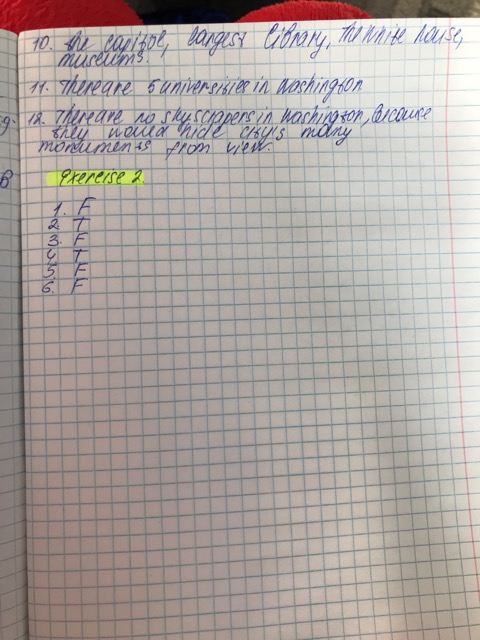 10. the capitol, largest library, the white house,
museums.
11. There are 5 universities in Washington
12. There are no skyscrapers in Washington, because
they would hide city's many
monuments from view.
exercise 2
1. F
2 T
3. F
4 T
5 F
6. F
g.
B